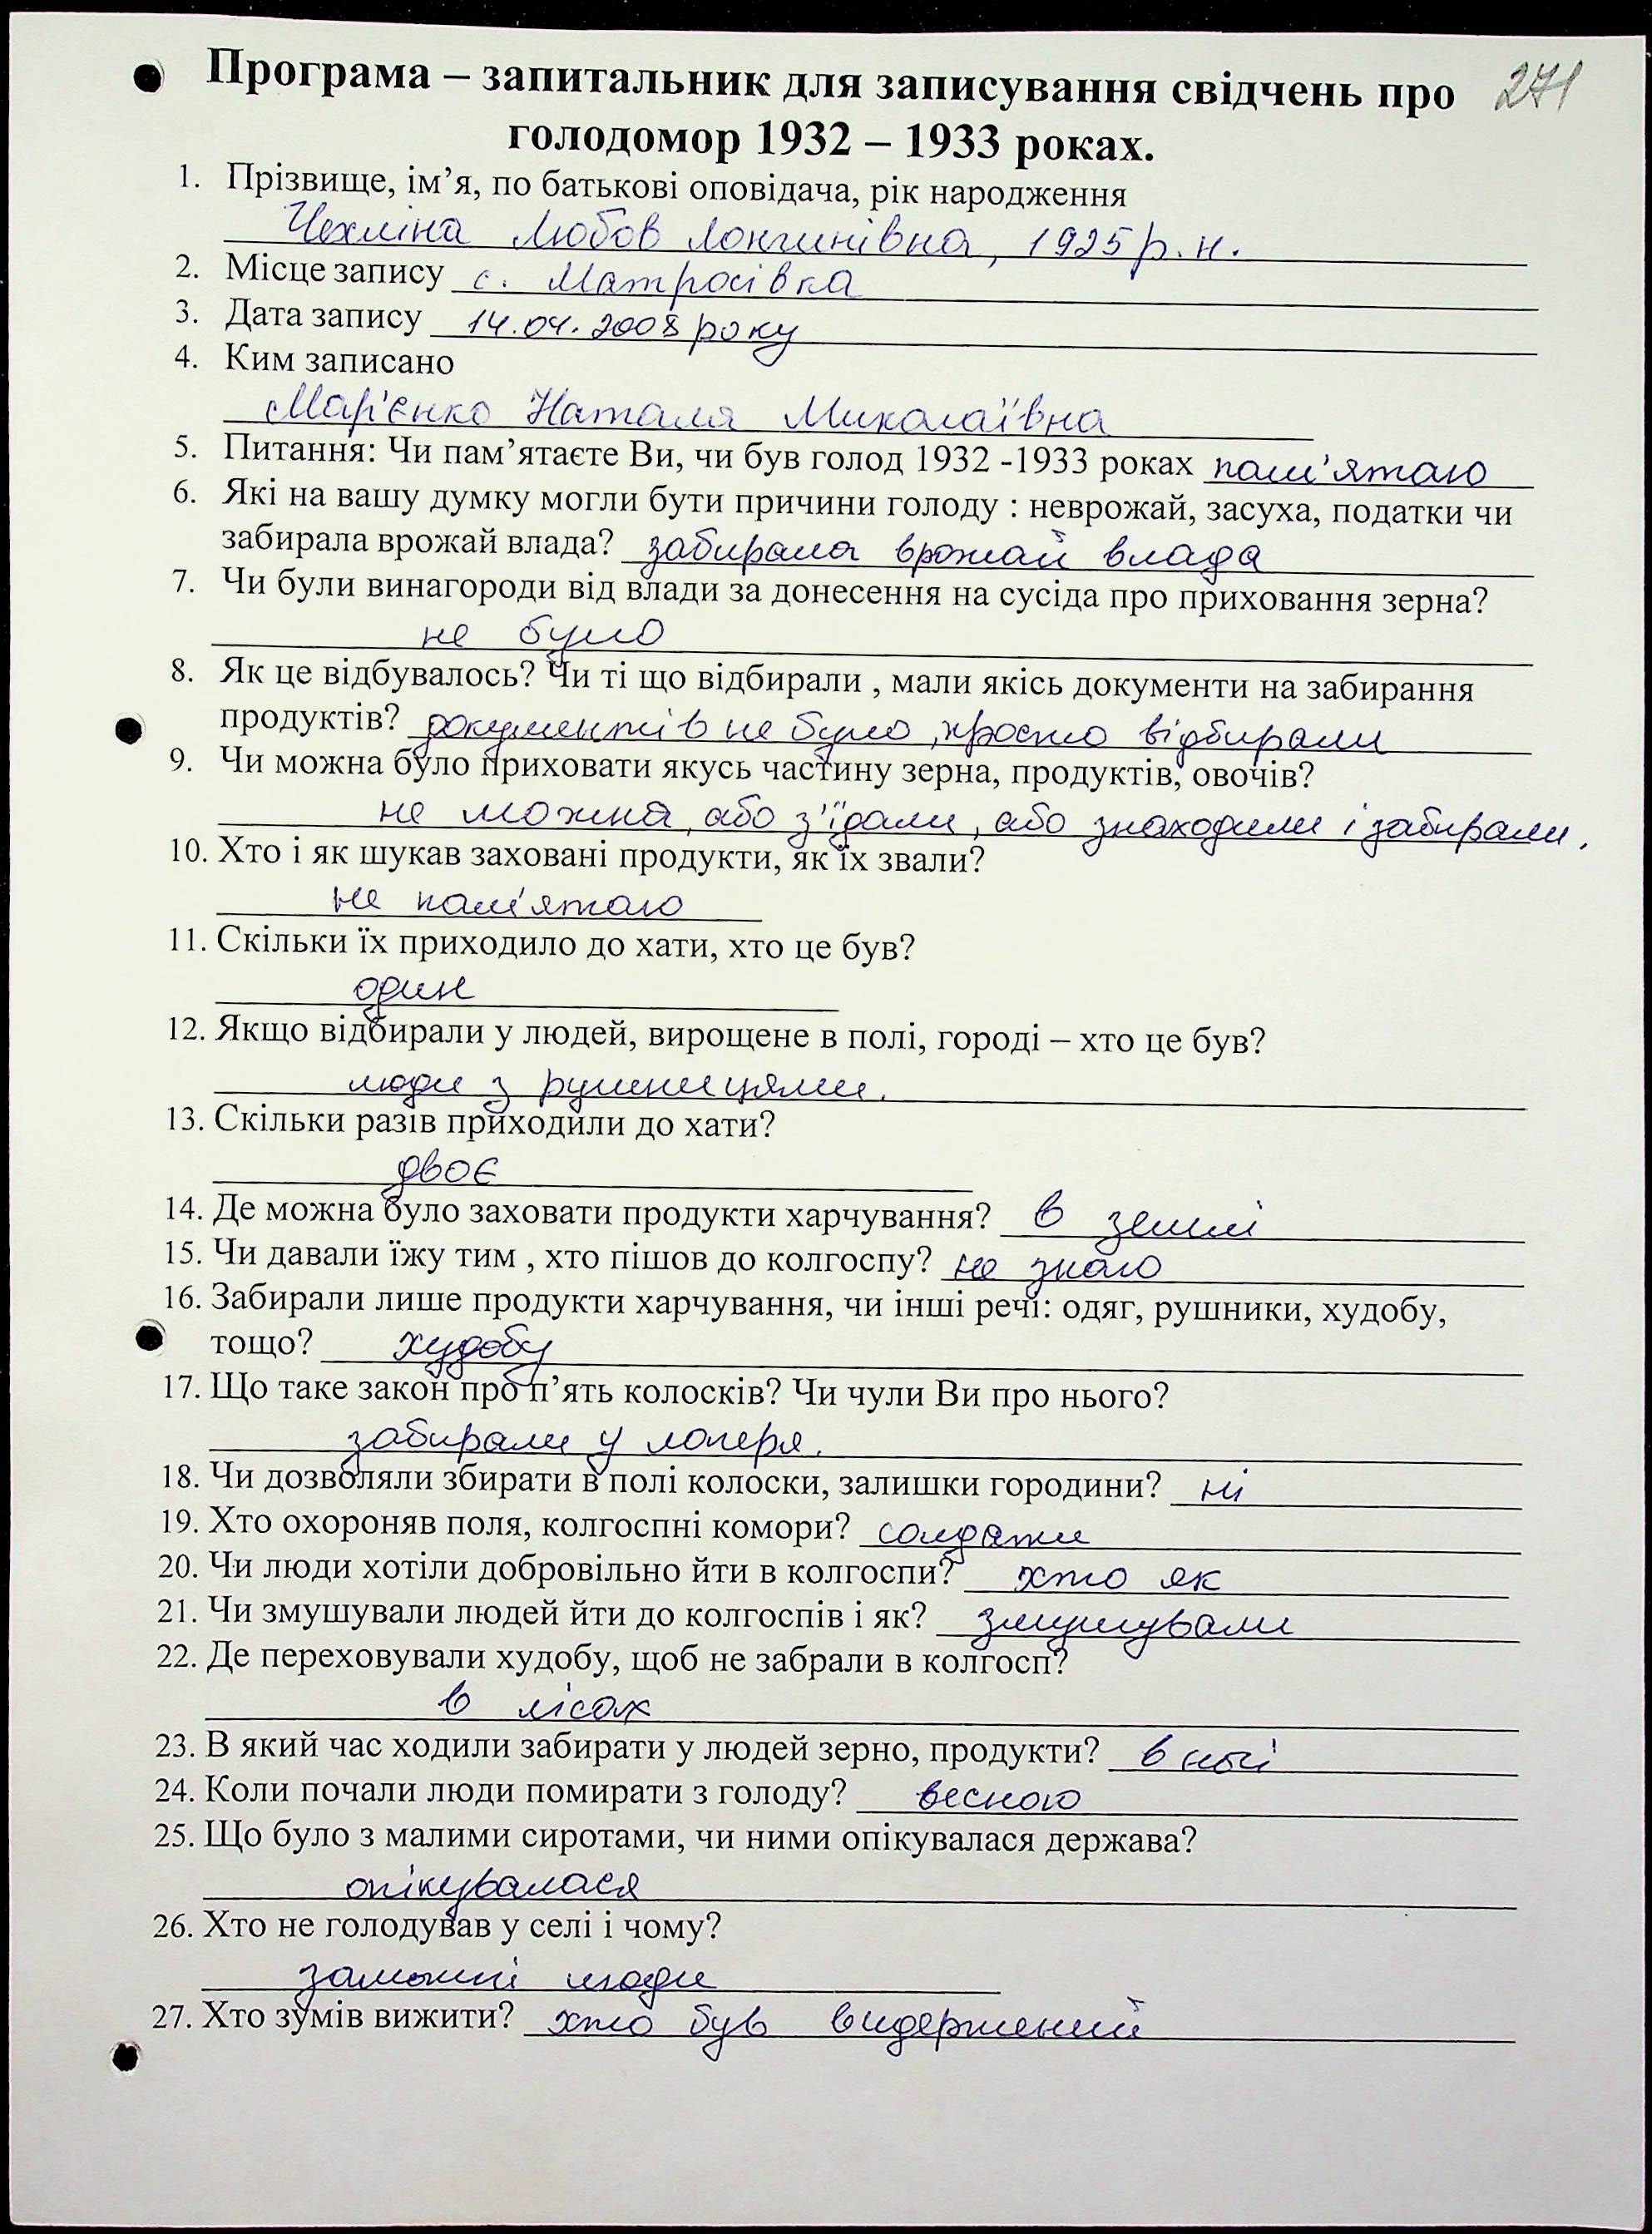 Програма – запитальник для записування свідчень про 271
голодомор 1932 – 1933 роках.
1. Прізвище, ім’я, по батькові оповідача, рік народження
Чехліна Любов Лонгинівна, 1925 р. н.
2. Місце запису с. Матросівка
3. Дата запису 14.04.2008 року
4. Ким записано
Мар'єнко Наталя Миколаївна
5. Питання: Чи пам’ятаєте Ви, чи був голод 1932 -1933 роках пам'ятаю
6. Які на вашу думку могли бути причини голоду : неврожай, засуха, податки чи
забирала врожай влада? забирала врожай влада
7. Чи були винагороди від влади за донесення на сусіда про приховання зерна?
не було
8. Як це відбувалось? Чи ті що відбирали , мали якісь документи на забирання
продуктів? документів не було, просто відбирали
9. Чи можна було приховати якусь частину зерна, продуктів, овочів?
не можна, або з'їдали, або знаходили і забирали.
10. Хто і як шукав заховані продукти, як їх звали?
не пам'ятаю
11. Скільки їх приходило до хати, хто це був?
один
12. Якщо відбирали у людей, вирощене в полі, городі – хто це був?
люди з рушницями.
13. Скільки разів приходили до хати?
двоє
14. Де можна було заховати продукти харчування? в землі
15. Чи давали їжу тим , хто пішов до колгоспу? не знаю
16. Забирали лише продукти харчування, чи інші речі: одяг, рушники, худобу,
тощо? худобу
17. Що таке закон про п’ять колосків? Чи чули Ви про нього?
забирали у лагеря.
18. Чи дозволяли збирати в полі колоски, залишки городини? ні
19. Хто охороняв поля, колгоспні комори? солдати
20. Чи люди хотіли добровільно йти в колгоспи? хто як
21. Чи змушували людей йти до колгоспів і як? змушували
22. Де переховували худобу, щоб не забрали в колгосп?
в лісах
23. В який час ходили забирати у людей зерно, продукти? в ночі
24. Коли почали люди помирати з голоду? весною
25. Що було з малими сиротами, чи ними опікувалася держава?
опікувалася
26. Хто не голодував у селі і чому?
заможні люди
27. Хто зумів вижити? хто був видержений